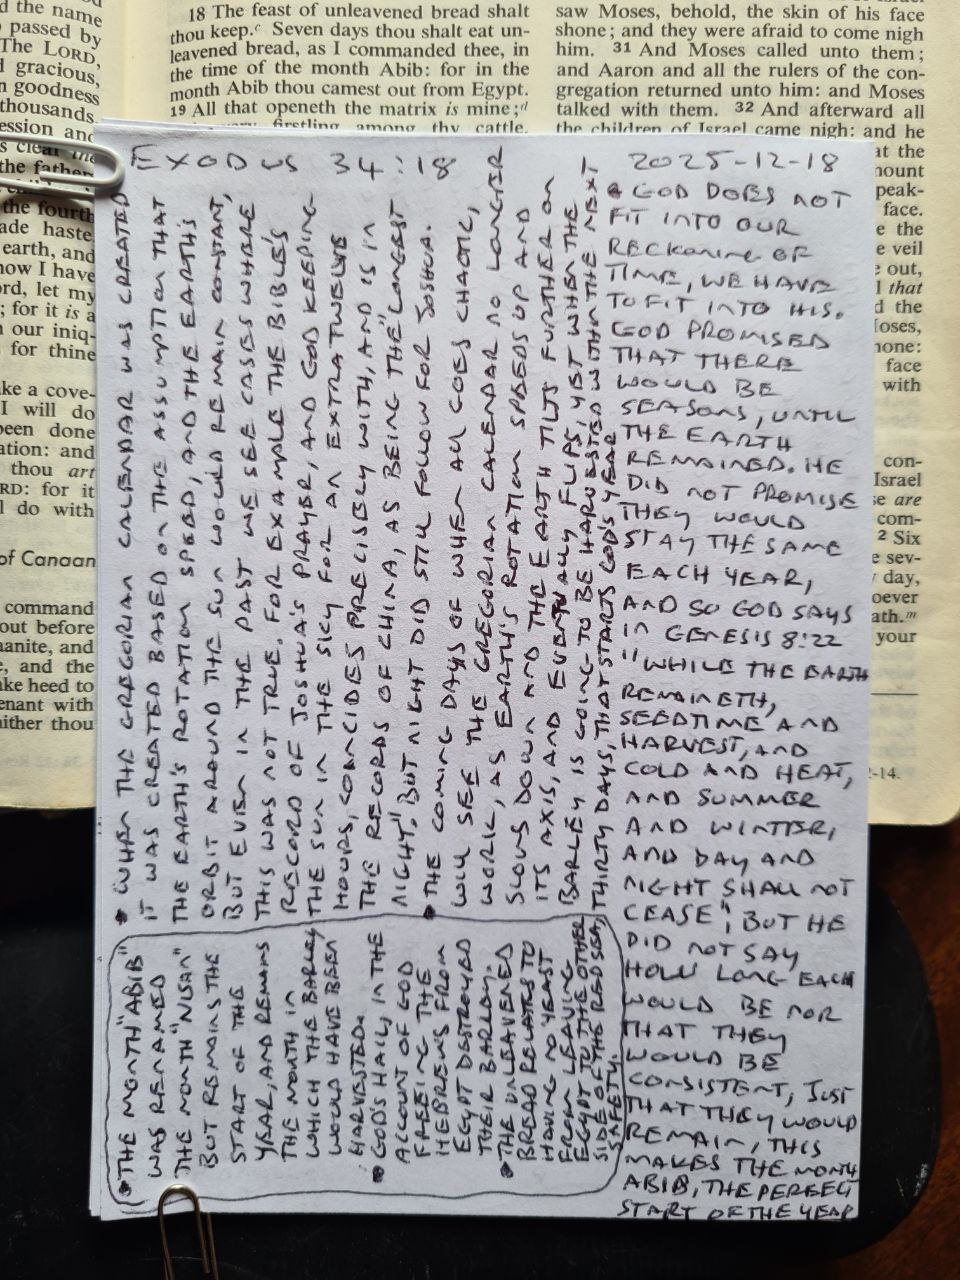 d the name
passed by
The LORD,
d gracious,
n goodness
thousands.
ession and
s clear the
the father
the fourth
ade haste
earth, and
now I have
ord, let my
; for it is a
n our iniq-
for thine
ake a cove-
I will do
been done
ation: and
thou art
RD: for it
l do with
of Canaan
command
out before
aanite, and
e, and the
ake heed to
enant with
hither thou
18 The feast of unleavened bread shalt
thou keep.c Seven days thou shalt eat un-
leavened bread, as I commanded thee, in
the time of the month Abib: for in the
month Abib thou camest out from Egypt.
19 All that openeth the matrix is mine;d
firstling among thy cattle,
saw Moses, behold, the skin of his face
shone; and they were afraid to come nigh
him. 31 And Moses called unto them;
and Aaron and all the rulers of the con-
gregation returned unto him: and Moses
talked with them. 32 And afterward all
the children of Israel came nigh: and he
at the
mount
peak-
face.
e the
e veil
out,
that
d the
Moses,
hone:
face
with
con-
Israel
se are
com-
2 Six
e sev-
day,
oever
ath.m
your
2-14.
EXODUS 34:18
2025-12-18
• THE MONTH "ABIB"
WAS RENAMED
THE MONTH "NISAN"
BUT REMAINS THE
START OF THE
YEAR, AND REMAINS
THE MONTH IN
WHICH THE BARLEY
WOULD HAVE BEEN
HARVESTED.
• GOD'S HAIL, IN THE
ACCOUNT OF GOD
FREEING THE
HEBREWS FROM
EGYPT DESTROYED
THEIR BARLEY.
• THE UNLEAVENED
BREAD RELATES TO
HAVING NO YEAST
FROM LEAVING
EGYPT TO THE OTHER
SIDE OF THE RED SEA,
SAFETY.
• WHEN THE GREGORIAN CALENDAR WAS CREATED
IT WAS CREATED BASED ON THE ASSUMPTION THAT
THE EARTH'S ROTATION SPEED, AND THE EARTH'S
ORBIT AROUND THE SUN WOULD REMAIN CONSTANT,
BUT EVEN IN THE PAST WE SEE CASES WHERE
THIS WAS NOT TRUE. FOR EXAMPLE THE BIBLE'S
RECORD OF JOSHUA'S PRAYER, AND GOD KEEPING
THE SUN IN THE SKY FOR AN EXTRA TWELVE
HOURS, COINCIDES PRECISELY WITH, AND IS IN
THE RECORDS OF CHINA, AS BEING THE "LONGEST
NIGHT", BUT NIGHT DID STILL FOLLOW FOR JOSHUA.
• THE COMING DAYS OF WHEN ALL GOES CHAOTIC,
WILL SEE THE GREGORIAN CALENDAR NO LONGER
WORK, AS EARTH'S ROTATION SPEEDS UP AND
SLOWS DOWN AND THE EARTH TILTS FURTHER ON
ITS AXIS, AND EVENTUALLY FLIPS, YET WHEN THE
BARLEY IS GOING TO BE HARVESTED WITHIN THE NEXT
THIRTY DAYS, THAT STARTS GOD'S YEAR
• GOD DOES NOT
FIT INTO OUR
RECKONING OF
TIME, WE HAVE
TO FIT INTO HIS.
GOD PROMISED
THAT THERE
WOULD BE
SEASONS, UNTIL
THE EARTH
REMAINED. HE
DID NOT PROMISE
THEY WOULD
STAY THE SAME
EACH YEAR,
AND SO GOD SAYS
IN GENESIS 8:22
"WHILE THE EARTH
REMAINETH,
SEEDTIME AND
HARVEST, AND
COLD AND HEAT,
AND SUMMER
AND WINTER,
AND DAY AND
NIGHT SHALL NOT
CEASE", BUT HE
DID NOT SAY
HOW LONG EACH
WOULD BE NOR
THAT THEY
WOULD BE
CONSISTENT, JUST
THAT THEY WOULD
REMAIN, THIS
MAKES THE MONTH
ABIB, THE PERFECT
START OF THE YEAR